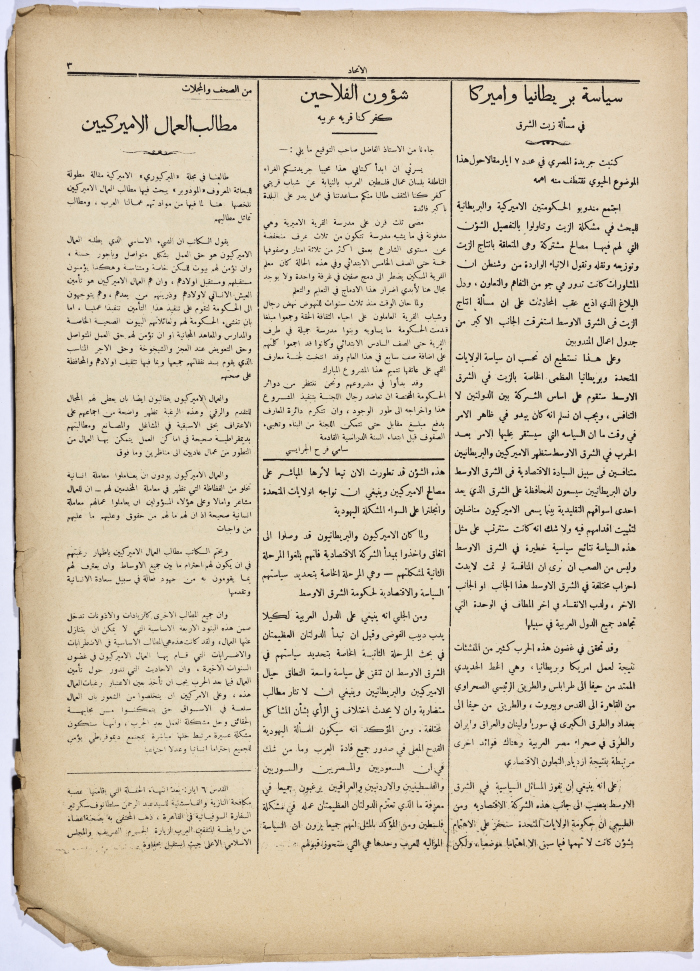 الاتحاد
٣
سياسة بريطانيا واميركا
في مسألة زيت الشرق
كتبت جريدة المصري في عدد ٧ ايار مقالا حول هذا
الموضوع الحيوي نقتطف منه اهمه
اجتمع مندوبو الحكومتين الاميركية والبريطانية
للبحث في مشكلة الزيت وتناولوا بالتفصيل الشؤن
التي لهم فيها مصالح مشتركة وهي المتعلقة بانتاج الزيت
وتوزيعه ونقله وتقول الانباء الواردة من وشنطن ان
المشاورات كانت تدور في جو من التفاهم والتعاون، ودل
البلاغ الذي اذيع عقب المحادثات على ان مسألة انتاج
الزيت في الشرق الاوسط استغرقت الجانب الاكبر من
جدول اعمال المندوبين
وعلى هذا نستطيع ان نحسب ان سياسة الولايات
المتحدة وبريطانيا العظمى الخاصة بالزيت في الشرق
الاوسط ستقوم على اساس الشركة بين الدولتين لا
التنافس، ويجب ان نسلم انه كان يبدو في ظاهر الامر
في وقت ما ان السياسه التي سيستقر عليها الامر بعد
الحرب في الشرق الاوسط ستظهر الاميركيين والبريطانيين
متنافسين في سبيل السيادة الاقتصادية في الشرق الاوسط
وان البريطانيين سيسعون للمحافظة على الشرق الذي يعد
احدى اسواقهم التقليدية بينما يسعى الاميركيون مناضلين
لتثبيت اقدامهم فيه ولا شك انه كانت ستترتب على مثل
هذه السياسة نتائج سياسية خطيرة في الشرق الاوسط
وليس من الصعب ان نرى ان المنافسة لو تمت لايدت
احزاب مختلفة في الشرق الاوسط هذا الجانب او الجانب
الاخر، ولدب الانقسام في اخر المطاف في الوحدة التي
تجاهد جميع الدول العربية في سبيلها
وقد تحقق في غضون هذه الحرب كثير من المنشئات
نتيجة لعمل اميركا وبريطانيا، وهي الخط الحديدي
الممتد من حيفا الى طرابلس والطريق الرئيسي الصحراوي
من القاهرة الى القدس وبيروت، والطريق من حيفا الى
بغداد والطرق الكبرى في سوريا ولبنان والعراق وايران
والطرق في صحراء مصر الغربية وهناك فوائد اخرى
مرتبطة بنتيجة ازدياد التعاون الاقتصادي
على انه ينبغي ان يفوز المسائل السياسية في الشرق
الاوسط بنصيب الى جانب هذه الشركة الاقتصادية ومن
الطبيعي ان حكومة الولايات المتحدة ستحفز على الاهتمام
بشؤن كانت لا تهمها فيما سبق الا اهتماما موضعيا، ولكن
شؤون الفلاحين
كفر كنا قرية عربية
جاءنا من الاستاذ الفاضل صاحب التوقيع ما يلي :—
يسرني ان ابدأ كتابي هذا محييا جريدتكم الغراء
الناطقة بلسان عمال فلسطين العرب بالنيابة عن شباب قريتي
كفر كنا المثقف طالبا منكم مساعدتنا في عمل يدر على البلدة
باكبر فائدة
مضى ثلث قرن على مدرسة القرية الاميرية وهي
مدفونة في ما يشبه مدرسة تتكون من ثلاث غرف منخفضة
عن مستوى الشارع بعمق اكثر من ثلاثة امتار وصفوفها
خمسة حتى الصف الخامس الابتدائي وفي هذه الحالة كان معلم
القرية المسكين يضطر الى دمج صفين في غرفة واحدة ولا يوجد
مجال هنا لأبدي اضرار هذا الادماج في التعليم والتعلم
ولما حان الوقت منذ ثلاث سنوات للنهوض نهض رجال
وشباب القرية العاملون على احياء الثقافة الحقة وجمعوا مبلغا
قدمت الحكومة ما يساويه وبنوا مدرسة جميلة في طرف
القرية حتى الصف السادس الابتدائي وكانوا قد اجمعوا كلمتهم
على اضافة صف سابع في هذا العام وقد انتخبت لجنة معارف
القي على عاتقها تتميم هذا المشروع المبارك
وقد بدأوا في مشروعهم ونحن ننتظر من دوائر
الحكومة المختصة ان تعاضد رجال اللجنة بتنفيذ المشروع
هذا واخراجه الى طور الوجود، وان تتكرم دائرة المعارف
بدفع مبلغ مقابل حتى تتمكن اللجنة من البناء وتهيىء
الصفوف قبل ابتداء السنة الدراسية القادمة
سامي فرح الجرايسي
هذه الشؤن قد تطورت الان تبعا لأثرها المباشر على
مصالح الاميركيين وينبغي ان تواجه الولايات المتحدة
وانجلترا على السواء المشكلة اليهودية
ولما كان الاميركيون والبريطانيون قد وصلوا الى
اتفاق واخذوا بمبدأ الشركة الاقتصادية فانهم بلغوا المرحلة
الثانية لمشكلتهم — وهي المرحلة الخاصة بتحديد سياستهم
السياسة والاقتصادية لحكومة الشرق الاوسط
ومن الجلي انه ينبغي على الدول العربية لكيلا
يدب دبيب الفوضى وقيل ان تبدأ الدولتان العظيمتان
في بحث المرحلة الثانية الخاصة بتحديد سياستهم في
الشرق الاوسط ان تتفق على سياسة واسعة النطاق حيال
الاميركيين والبريطانيين وينبغي ان لا تثار مطالب
متضاربة وان لا يحدث اختلاف في الرأي بشأن المشاكل
مختلفة. ومن المؤكد انه سيكون للمسألة اليهودية
القدح المعلى في صدور جميع قادة العرب وما من شك
في ان السعوديين والمصريين والسوريين
والفلسطينيين والاردنيين والعراقيين يرغبون جميعا في
معرفة ما الذي تعتزم الدولتان العظيمتان عمله في مشكلة
فلسطين ومن المؤكد بالمثل انهم جميعا يرون ان السياسة
المواليه للعرب وحدها هي التي ستحوز قبولهم
من الصحف والمجلات
مطالب العمال الاميركيين
طالعنا في مجلة «الميركوري» الاميركية مقالة مطولة
للبحاثة المعروف «المودوير» يبحث فيها مطالب العمال الاميركيين
نلخصها هنا لما فيها من مواد تهم عمالنا العرب، ومطالب
تماثل مطالبهم
يقول الكاتب ان الشيء الاساسي الذي يطلبه العمال
الاميركيون هو حق العمل بشكل متواصل وباجور حسنة،
وان تؤمن لهم بيوت للسكن خاصة ومتناسبة وهكذا يؤمنون
مستقبلهم ومستقبل اولادهم، وان هم العمال الاميركيين هو تأمين
العيش الانساني لاولادهم وذريتهم من بعدهم، وهم يتوجهون
الى الحكومة لتقوم على تنفيذ هذا التأمين تنفيذا عمليا، اما
بان تنشىء الحكومة لهم ولعائلاتهم البيوت الصحية الخاصة
والمدارس والمعاهد المجانية او ان تؤمن لهم حق العمل المتواصل
وحق التعويض عند العجز والشيخوخة وحق الاجر المناسب
الذي يقوم بسد نفقاتهم جميعها وبما فيها تثقيف اولادهم والمحافظة
على صحتهم
والعمال الاميركيون يطالبون ايضا بان يعطى لهم المجال
للتقدم والرقي وهذه الرغبة تظهر واضحة من اجماعهم على
الاعتراف بحق الاسبقية في المشاغل والمصانع ومطالبتهم
بديمقراطية صحيحة في اماكن العمل يتمكن بها العمال من
التطور من عمال عاديين الى مناظرين وما فوق
والعمال الاميركيون يودون ان يعاملوا معاملة انسانية
تخلو من الفظاظة التي تظهر في معاملة المخدمين لهم — ان للعمال
مشاعر وامالا وعلى هؤلاء المسؤولين ان يعاملوا عمالهم معاملة
انسانية صحيحة اذ ان لهم ما لهم من حقوق وعليهم ما عليهم
من واجبات
ويختم الكاتب مطالب العمال الاميركيين باظهار رغبتهم
في ان يكون لهم احترام ما بين جميع الاوساط وان يعترف لهم
بما يقومون به من جهود فعالة في سبيل سعادة الانسانية
وتقدمها
وان جميع المطالب الاخرى كالزيادات والاذونات تدخل
ضمن هذه البنود الاربعة الاساسية التي لا يمكن ان يتنازل
عنها العمال، ولقد كانت هذه هي المطالب الاساسية في الاضطرابات
والاضرابات التي قام بها العمال الاميركيون في غضون
السنوات الاخيرة، وان الاحاديث التي تدور حول تأمين
العمال فيما بعد الحرب يجب ان تأخذ بعين الاعتبار رغبات العمال
هذه، وعلى الاميركيين ان يتخلصوا من الشعور بان العمال
سلعة في الاسواق حتى يتمكنوا من مجابهة
الحقائق وحل مشكلة العمل بعد الحرب، وانها ستكون
مشكلة عسيرة مرتبط حلها مباشرة بمجتمع ديموقراطي يؤمن
للجميع احتراما انسانيا وعدلا اجتماعيا
القدس ٦ ايار : بعد انتهاء الحفلة التي اقامتها عصبة
مكافحة النازية والفاشستية للسيد عبد الرحمن سلطانوف سكرتير
السفارة السوفياتية في القاهرة، ذهب المحتفى به بصحبة اعضاء
من رابطة المثقفين العرب لزيارة الحرم الشريف والمجلس
الاسلامي الاعلى حيث استقبل بحفاوة